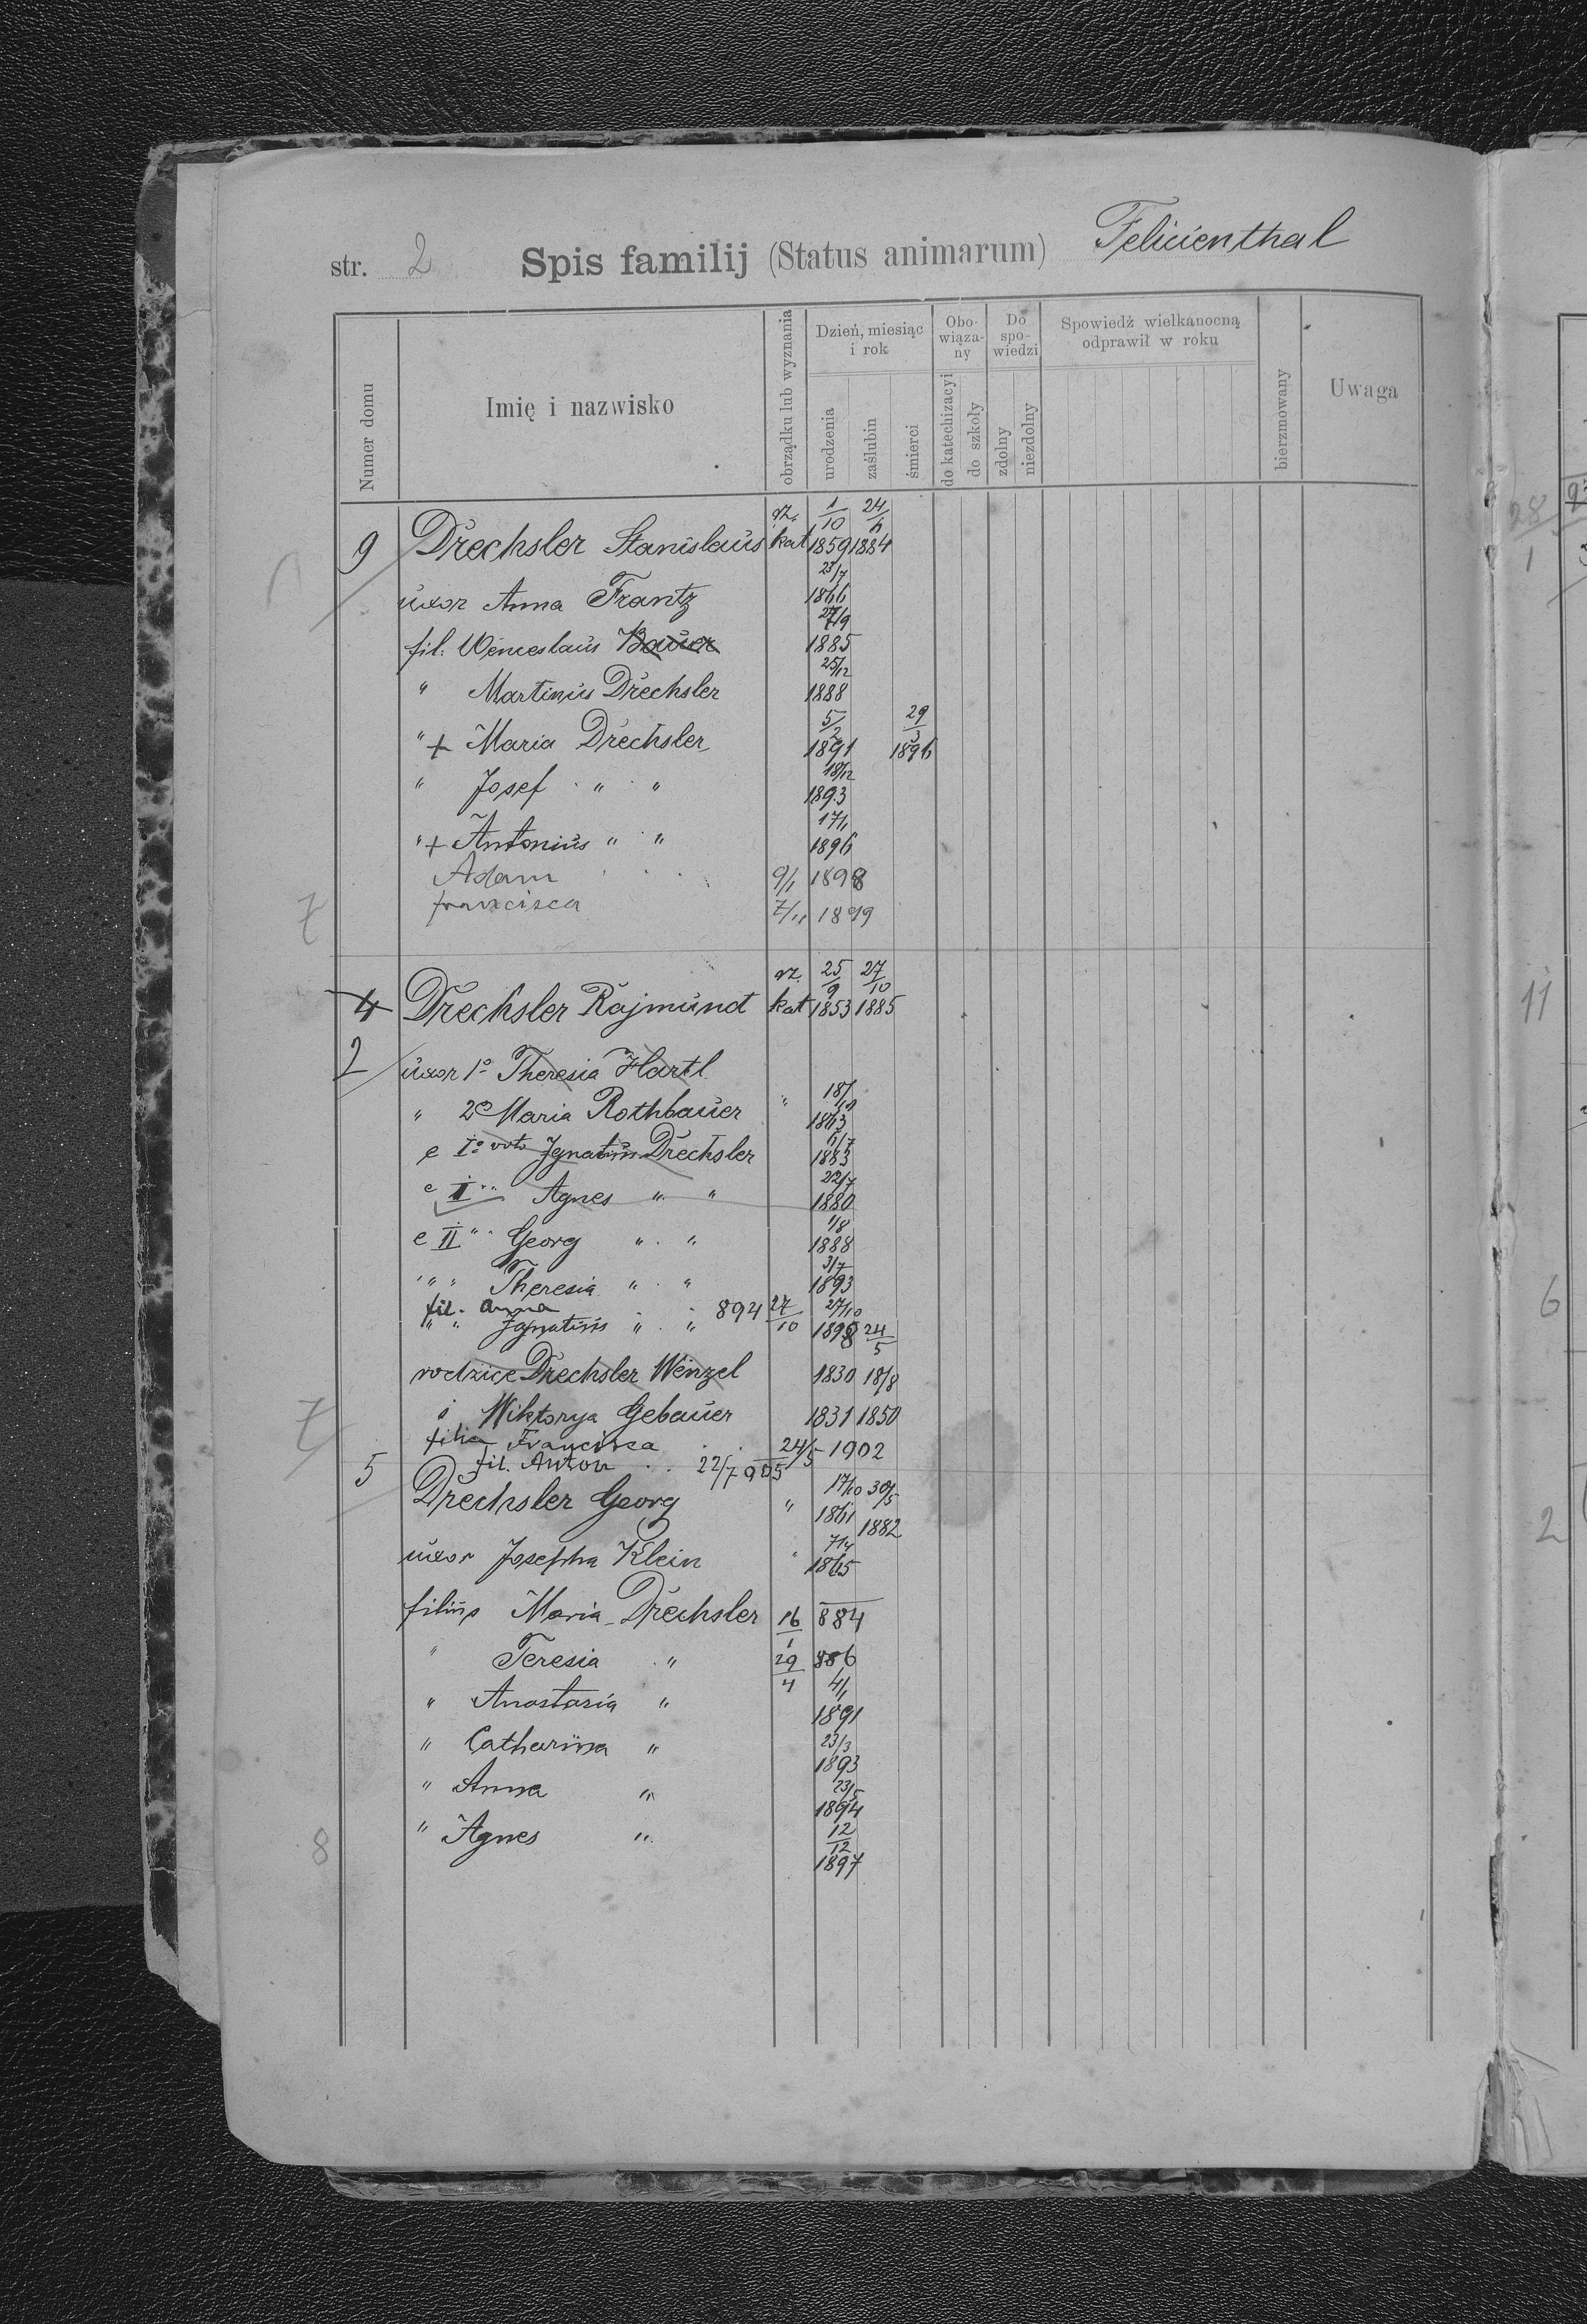 str. 2 Spis familij (Status animarum) Felicienthal
Numer domu
Imię i nazwisko
obrządku lub wyznania
Dzień, miesiąc i rok
urodzenia
zaślubin
śmierci
Obo-wiąza-ny
do katechizacyi
do szkoły
Do spo-wiedzi
zdolny
niezdolny
Spowiedź wielkanocną
odprawił w roku
bierzmowany
Uwaga
9 Drechsler Stanislaus rz. kat 1/10 1859 24/6 1884
uxor Anna Frantz 23/7 1866
fil: Wenceslaus Bauer 27/9 1885
" Martinus Drechsler 25/12 1888
" + Maria Drechsler 5/2 1891 29/3 1896
" Josef " " 18/12 1893
" + Antonius " " 17/1 1896
Adam 9/1 1898
Francisca 7/11 1899
7
4 Drechsler Rajmund rz. kat 25/9 1853 27/10 1885
2 uxor 1o Theresia Hartl
" 2o Maria Rothbauer " 18/10 1863
e Io voto Ignatius Drechsler 6/7 1883
e I " Agnes " " 22/7 1880
e II " Georg " " 1/8 1888
" " Theresia " " 3/7 1893
fil. Anna 894 27/10
" " Ignatius " " 27/10 1898 24/5
rodzice Drechsler Wenzel 1830 18/8
i Wiktorya Gebauer 1831 1850
7
filia Francisca 24/5 1902
fil. Anton 22/7 905
5 Drechsler Georg " 17/10 1861 30/5 1882
uxor Josepha Klein " 7/4 1865
filius Maria Drechsler 16/1 884
" Teresia " 29/4 886
" Anastasia " 4/1 1891
" Catharina " 23/3 1893
" Anna " 23/5 1894
" Agnes " 12/12 1897
8
28/1
11
6
2